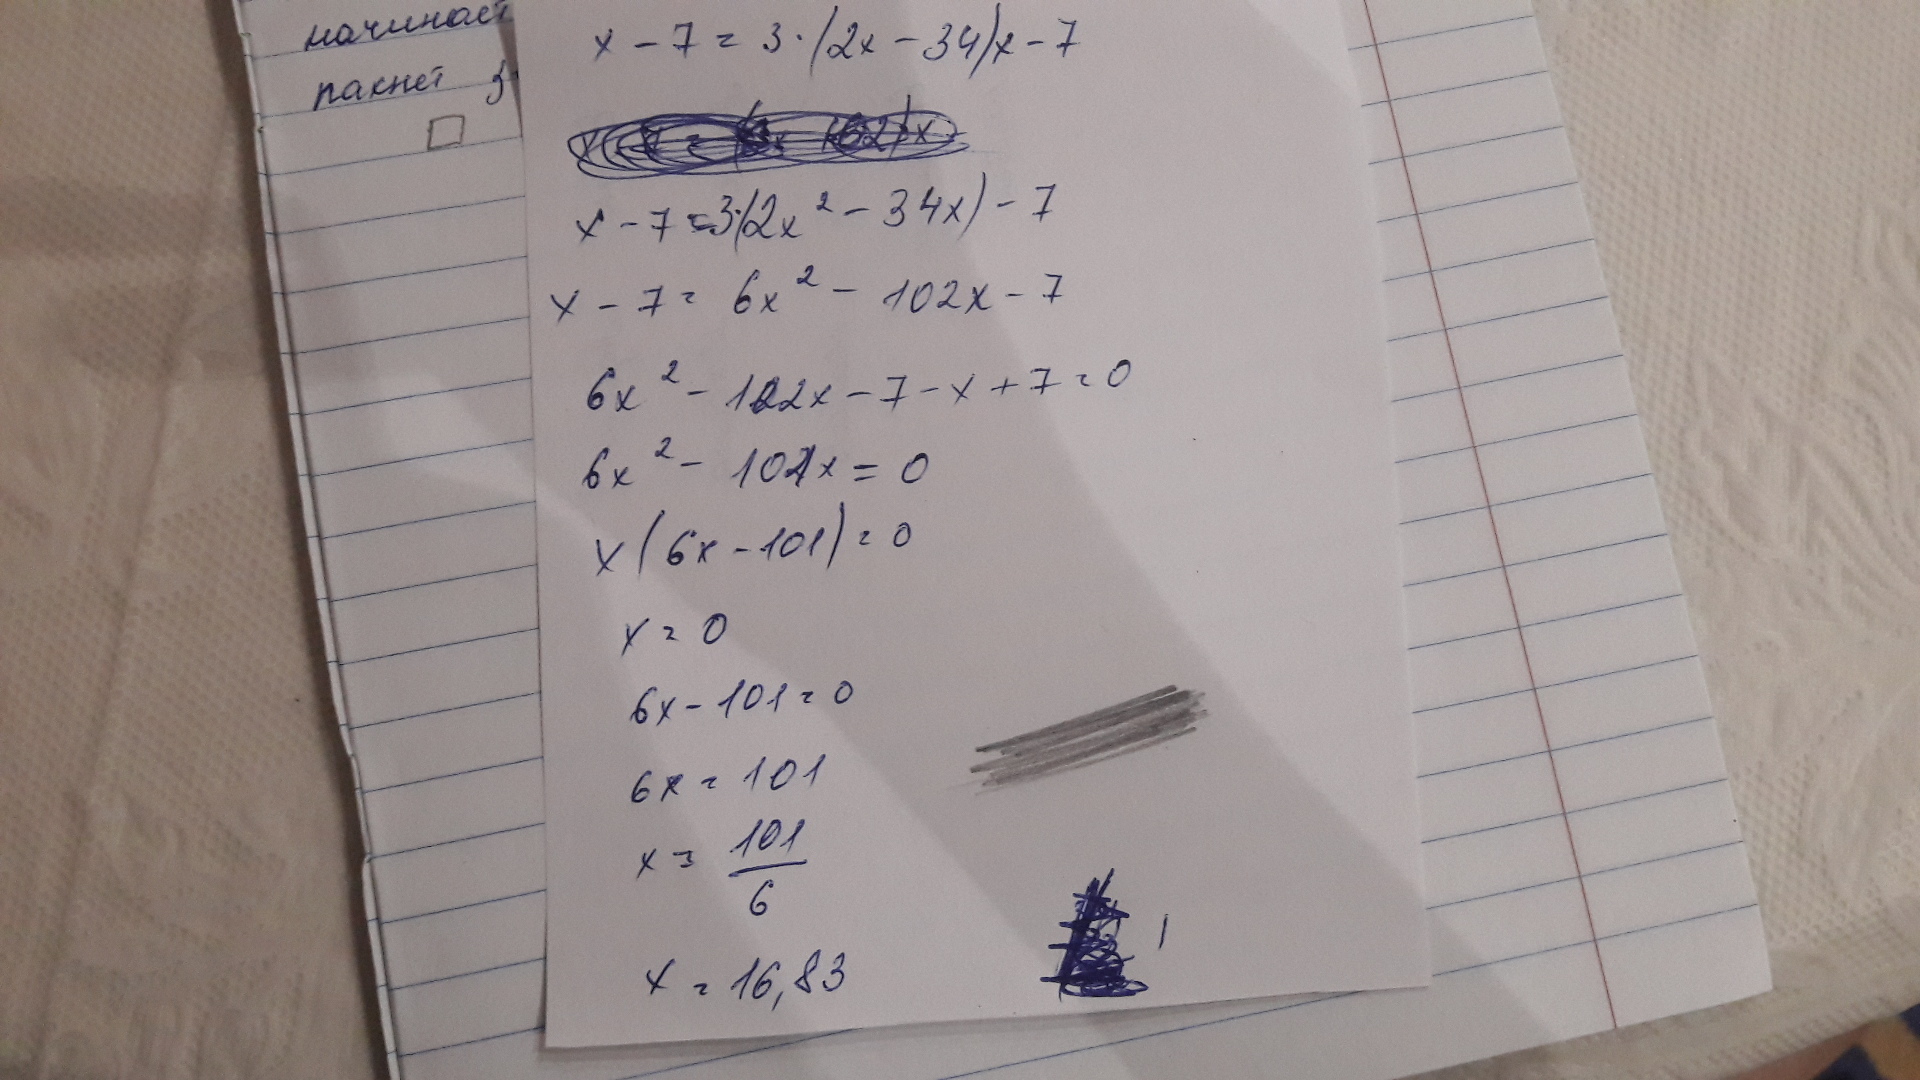 начинает
пахнет
x - 7 = 3·(2x - 34)x - 7
x - 7 = 3·(2x² - 34x) - 7
x - 7 = 6x² - 102x - 7
6x² - 102x - 7 - x + 7 = 0
6x² - 101x = 0
x(6x - 101) = 0
x = 0
6x - 101 = 0
6x = 101
x = 101/6
x = 16,83